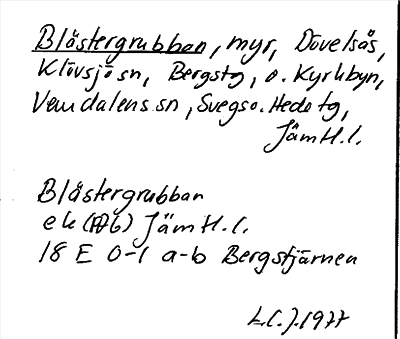 Blästergrubban, myr, Dovelsås,
Klövsjö sn, Bergs tg, o. Kyrkbyn,
Vemdalens sn, Svegs o. Hede tg,
Jämtl.l.
Blästergrubban
ek Jämtl.l.
18 E 0-1 a-b Bergstjärnen
L.C.J. 1977